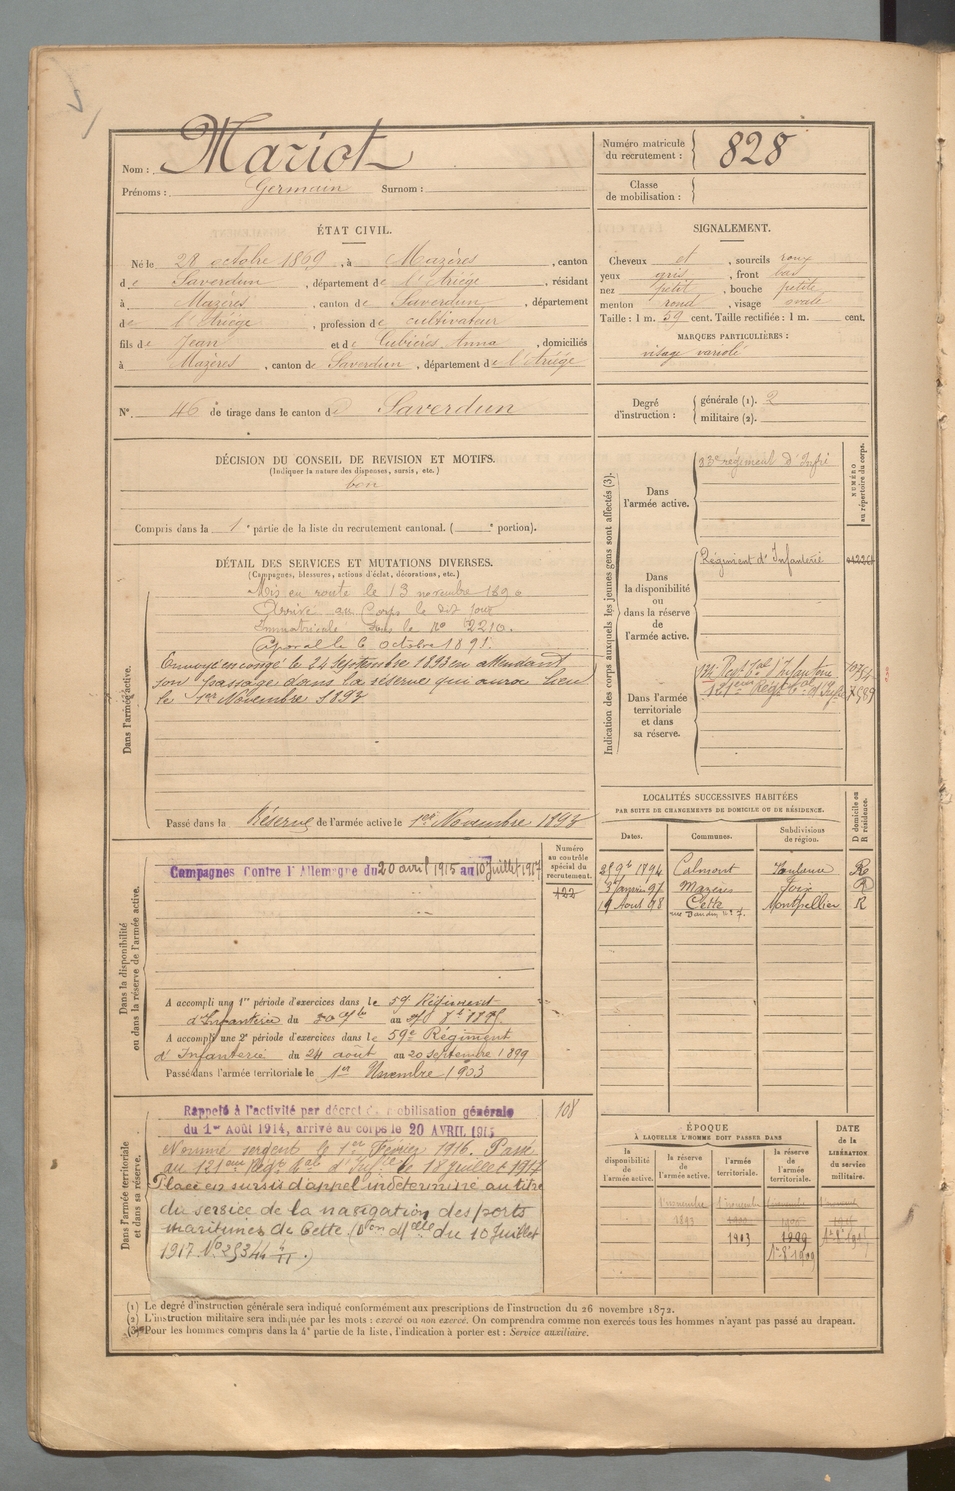 Nom : Mariot
Prénoms : Germain Surnom :
Numéro matricule du recrutement : 828
Classe de mobilisation :
ÉTAT CIVIL.
Né le 28 octobre 1869, à Mazères, canton
de Saverdun, département de l'Ariége, résidant
à Mazères, canton de Saverdun, département
de l'Ariége, profession de cultivateur
fils de Jean et de Cubières Anna, domiciliés
à Mazères, canton de Saverdun, département de l'Ariége
SIGNALEMENT.
Cheveux et, sourcils roux
yeux gris, front bas
nez petit, bouche petite
menton rond, visage ovale
Taille : 1 m. 59 cent. Taille rectifiée : 1 m. cent.
MARQUES PARTICULIÈRES :
visage variolé
N°. 46 de tirage dans le canton de Saverdun
Degré d'instruction : générale (1). 2
militaire (2).
DÉCISION DU CONSEIL DE REVISION ET MOTIFS.
(Indiquer la nature des dispenses, sursis, etc.)
bon
Compris dans la 1e partie de la liste du recrutement cantonal. ( e portion).
DÉTAIL DES SERVICES ET MUTATIONS DIVERSES.
(Campagnes, blessures, actions d'éclat, décorations, etc.)
Dans l'armée active.
Mis en route le 13 novembre 1890
Arrivé au Corps le dit jour
Immatriculé sous le no 2210.
Caporal le 6 octobre 1891.
Envoyé en congé le 24 Septembre 1893 en attendant
son passage dans la réserve qui aura lieu
le 1er Novembre 1893
Passé dans la Réserve de l'armée active le 1er Novembre 1893
Indication des corps auxquels les jeunes gens sont affectés (3).
NUMÉRO au répertoire du corps.
Dans l'armée active.
régiment d'Infie
Dans la disponibilité ou dans la réserve de l'armée active.
Régiment d'Infanterie
Dans l'armée territoriale et dans sa réserve.
Regt Tal d'Infanterie
121eme Régt Tal d'Infie
LOCALITÉS SUCCESSIVES HABITÉES
PAR SUITE DE CHANGEMENTS DE DOMICILE OU DE RÉSIDENCE.
Dates. Communes. Subdivisions de région. D domicile ou R résidence.
1894 Calmont Toulouse R
3 Janvier 97 Mazères Foix R
19 Aout 98 Cette Montpellier R
Dans la disponibilité ou dans la réserve de l'armée active.
Numéro au contrôle spécial du recrutement.
122
Campagnes Contre l'Allemagne du 20 avril 1915 au 10 Juillet 1917
A accompli une 1re période d'exercices dans le 59 Régiment
d'Infanterie du
A accompli une 2e période d'exercices dans le 59e Régiment
d'Infanterie du 24 août au 20 septembre 1899
Passé dans l'armée territoriale le 1er Novembre 1903
Dans l'armée territoriale et dans sa réserve.
108
Rappelé à l'activité par décret de mobilisation générale
du 1er Août 1914, arrivé au corps le 20 AVRIL 1915
Nommé sergent le 1er Février 1916. Passé
au 121eme Régt Tal d'Infie le 18 Juillet 1917
Placé en sursis d'appel indéterminé au titre
du service de la navigation des ports
maritimes de Cette (Don Melle du 10 Juillet
1917 No
ÉPOQUE
À LAQUELLE L'HOMME DOIT PASSER DANS
la disponibilité de l'armée active.
la réserve de l'armée active.
l'armée territoriale.
la réserve de l'armée territoriale.
DATE de la LIBÉRATION du service militaire.
1 novembre 1893
1903
1909
(1) Le degré d'instruction générale sera indiqué conformément aux prescriptions de l'instruction du 26 novembre 1872.
(2) L'instruction militaire sera indiquée par les mots : exercé ou non exercé. On comprendra comme non exercés tous les hommes n'ayant pas passé au drapeau.
(3) Pour les hommes compris dans la 4e partie de la liste, l'indication à porter est : Service auxiliaire.